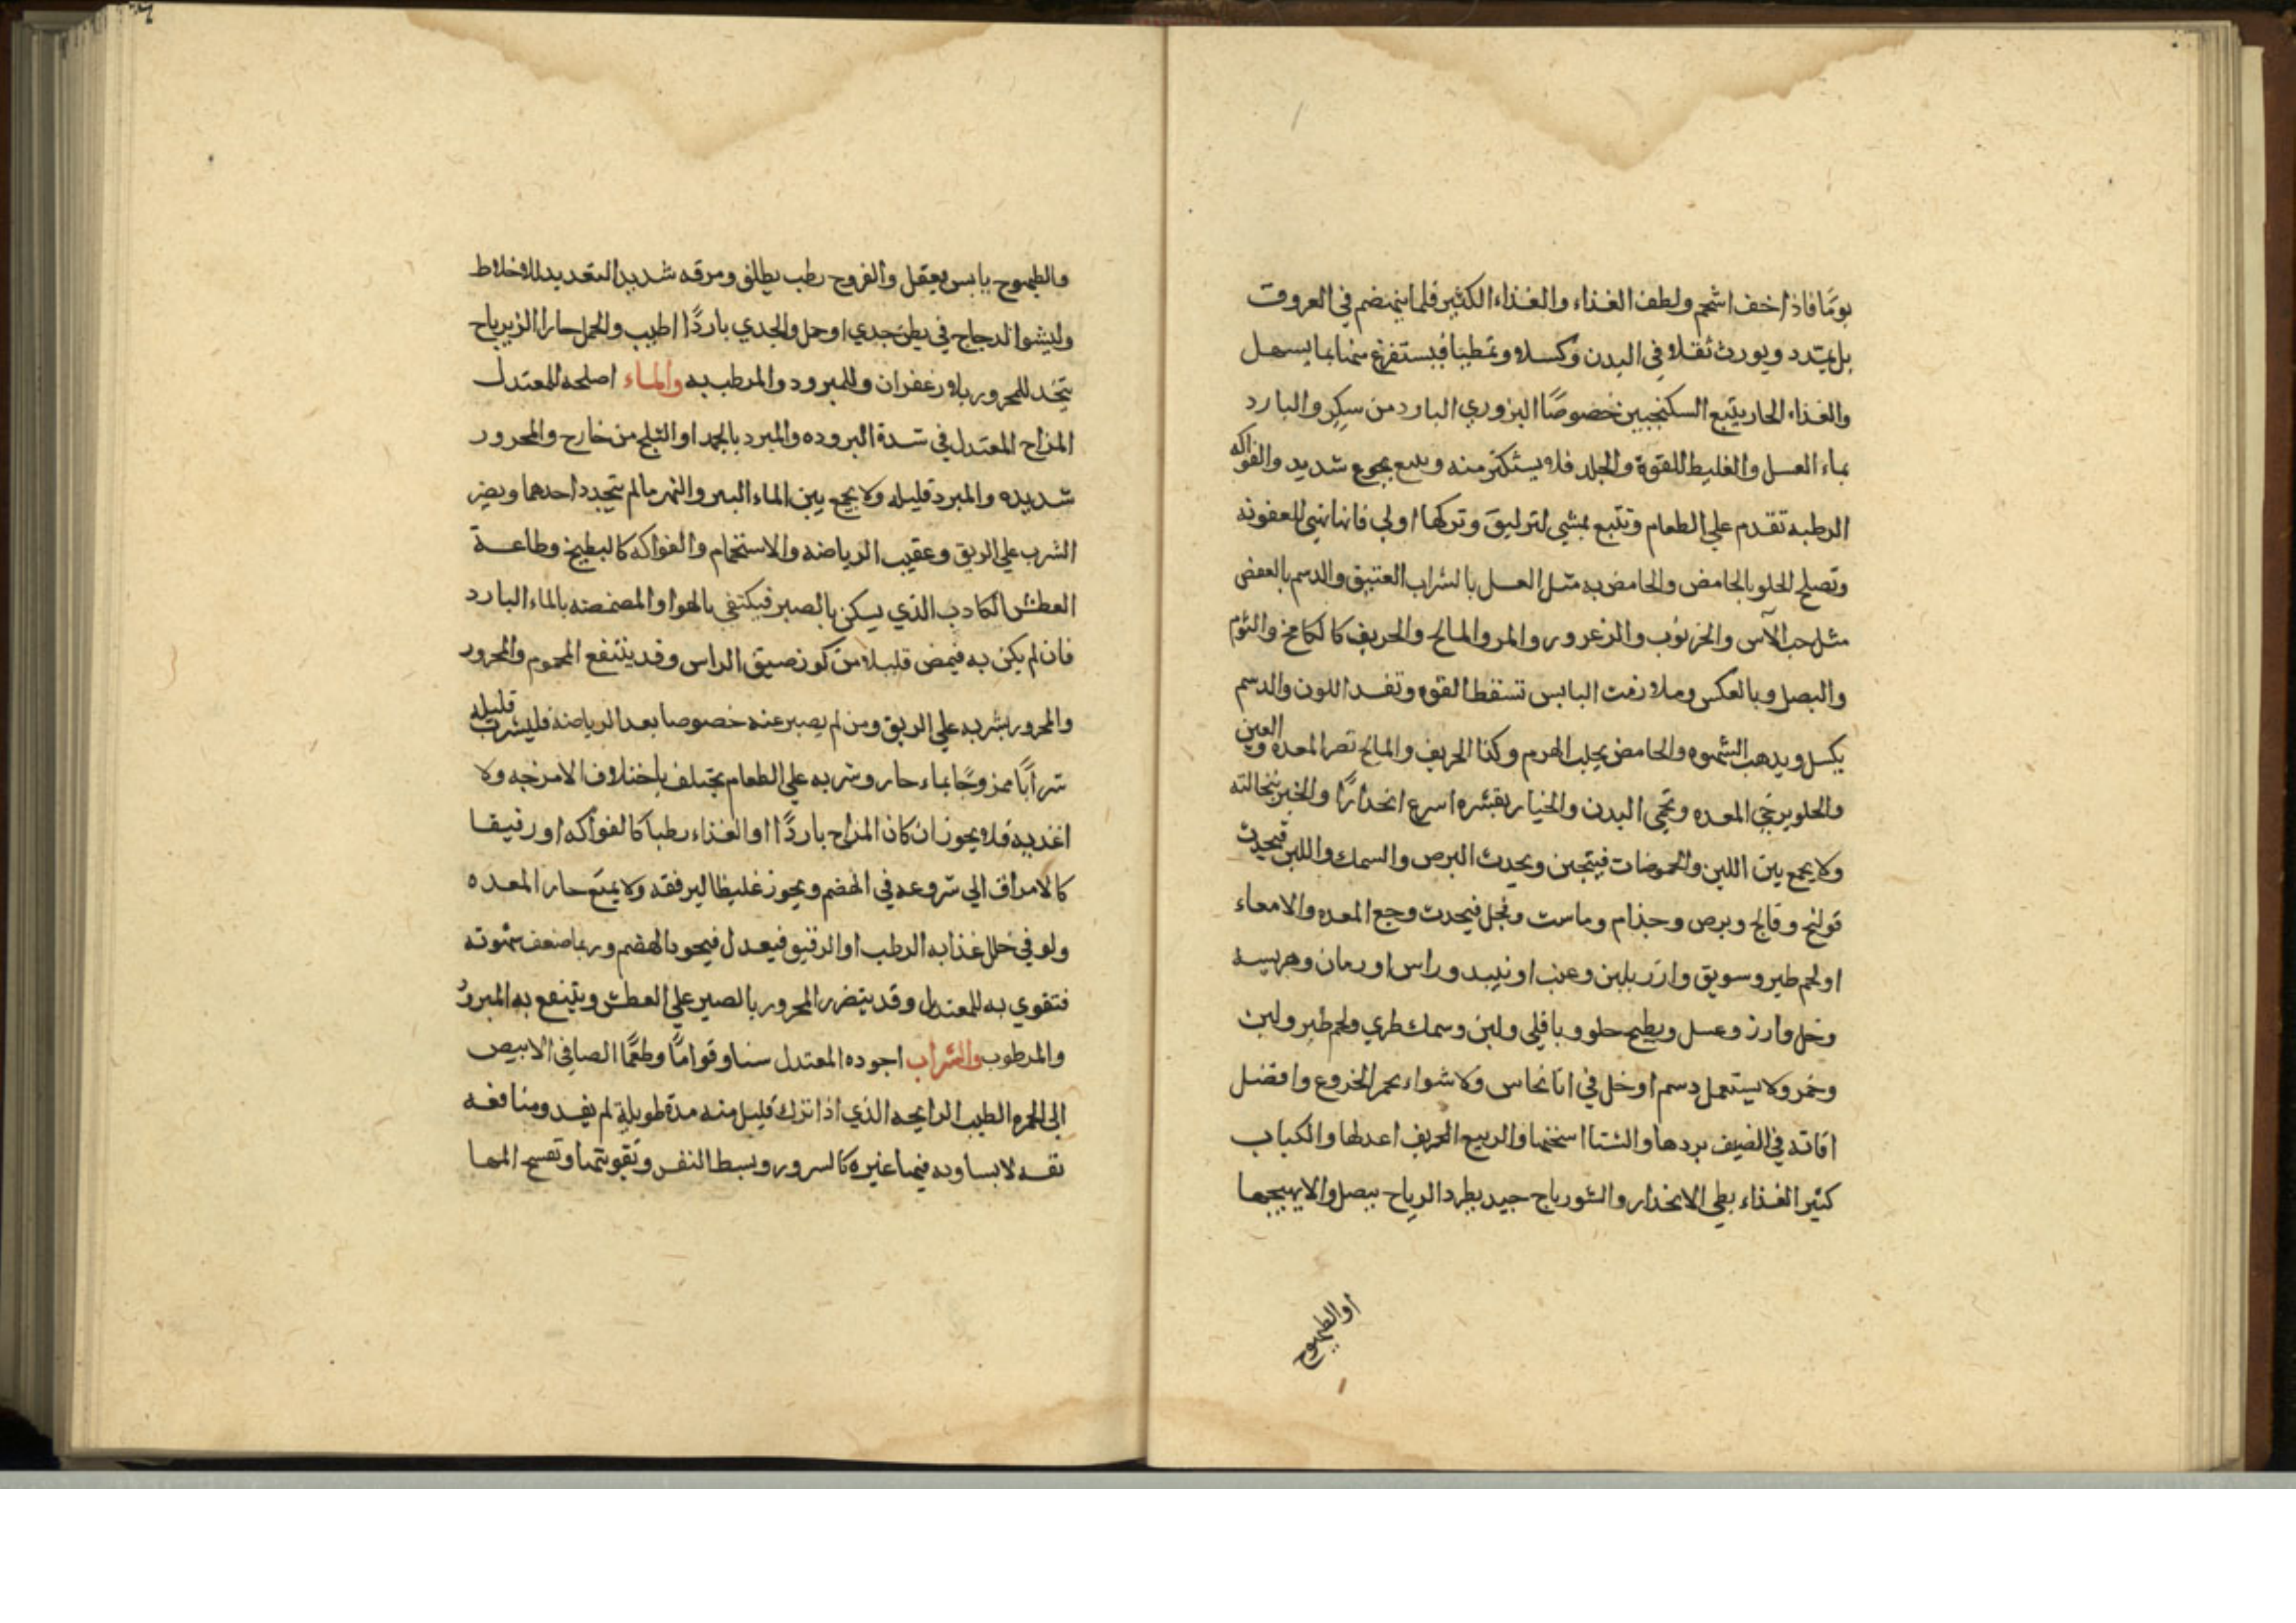 يومًا فاذا خف اشحم ولطف الغذاء والغذاء الكثير فلما ينهضم في العروق
بل يتمدد ويورث ثقلا في البدن وكسلا وتمطيا فيستفرغ منها بما يسهل
والغذاء الحار يتبع السكنجبين خصوصًا البزوري البارد من سكر والبارد
بماء العسل والغليظ للقوة والجلد فلا يستكثر منه ويتبع بجوع شديد والفواكه
الرطبه تقدم علي الطعام وتتبع بمشي لتزليق وتركها اولي فانها تهيي للعفونه
وتصلح الحلو بالحامض والحامض به مثل العسل بالشراب العتيق والدسم بالعفص
مثل حب الآس والخرنوب والزعرور والمر والمالح والحريف كالكامخ والثوم
والبصل وبالعكس وملازمت اليابس تسقط القوه وتفسد اللون والدسم
يكسل ويذهب الشهوه والحامض يجلب الهرم وكذا الحريف والمالح تضر المعده والعين
والحلو يرخي المعده وتحمي البدن والخيار بقشره اسرع انحدارًا والخبز بنخالته
ولا يجمع بين اللبن والحموضات فيتجبن ويحدث البرص والسمك واللبن فيحدث
قولنج وفالج وبرص وجذام وماست وفجل فيحدث وجع المعده والامعاء
او لحم طير وسويق وارز بلبن وعنب او نبيد وراس او رمان وهريسه
وخل وارز وعسل وبطيح حلو وباقلي ولبن وسمك طري ولحم طير ولبن
وخمر ولا يستعمل دسم او خل في انا نحاس ولا شواء بحمر الخروع وافضل
اقاته في الصيف بردها والشتا اسخنها والربيع الحريف اعدلها والكباب
كثير الغذاء بطي الانحدار والشورباج جيد يطرد الرياح ببصل والا يهيجها
او الطيهوج
والطيهوج يابس يعقل والفروج رطب يطلق ومرقه شديد التعديد للاخلاط
وليشوا الدجاج في بطن جدي او حمل والجدي باردًا اطيب والحمل حارا الزيرباج
يتخد للمحرور بلا زعفران وللمبرود والمرطب به والماء اصلحه للمعتدل
المزاج المعتدل في شدة البروده والمبرد بالجمد او الثلج من خارج والمحرور
شديده والمبرد قليله ولا يجمع بين الماء البير والنهر مالم يتجدد احدهما ويضر
الشرب علي الريق وعقيب الرياضه والاستحمام والفواكه كالبطيخ وطاعة
العطش الكادب الذي يسكن بالصبر فيكتفي بالهوا والمضمضه بالماء البارد
فان لم يكن به فيمض قليلا من كوز ضيق الراس وقد ينتفع المحموم والمحرور
والمحرور بشربه علي الريق ومن لم يصبر عنه خصوصا بعد الرياضة فليشرب قليله
شرابًا ممزوجًا بماء حار وشربه علي الطعام يختلف باختلاف الامزجه ولا
اغذيه فلا يجوز ان كان المزاج باردًا او الغذاء رطبا كالفواكه او رقيقا
كالامراق الي شروعه في الهضم ويجوز غليظا ليرفقه ولا يمنع حار المعده
ولو في خلل غذايه الرطب او الرقيق فيعدل فيجود الهضم وربما ضعف شهوته
فتقوي به للمعتدل وقد يتضرر المحرور بالصبر علي العطش وينتفع به المبرود
والمرطوب والشراب اجوده المعتدل سنا وقوامًا وطعمًا الصافي الابيض
الي الحمره الطيب الرايحه الذي اذا ترك قليل منه مدة طويلة لم يفسد ومنافعه
نفسه لا يساويه فيها غيره كالسرور وبسط النفس وتقويتها وتفسح املها